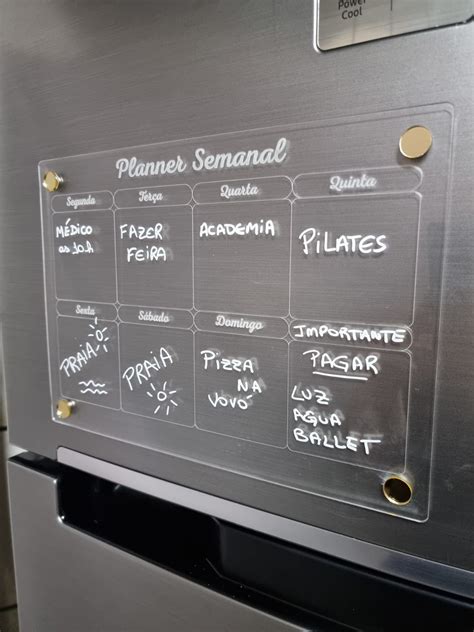 Power
Cool
Planner Semanal
Segunda
Terça
Quarta
Quinta
MÉDICO
às 10h
FAZER
FEIRA
ACADEMIA
PILATES
Sexta
Sábado
Domingo
IMPORTANTE
PRAIA
PRAIA
PIZZA
NA
VOVÓ
PAGAR
LUZ
AGUA
BALLET